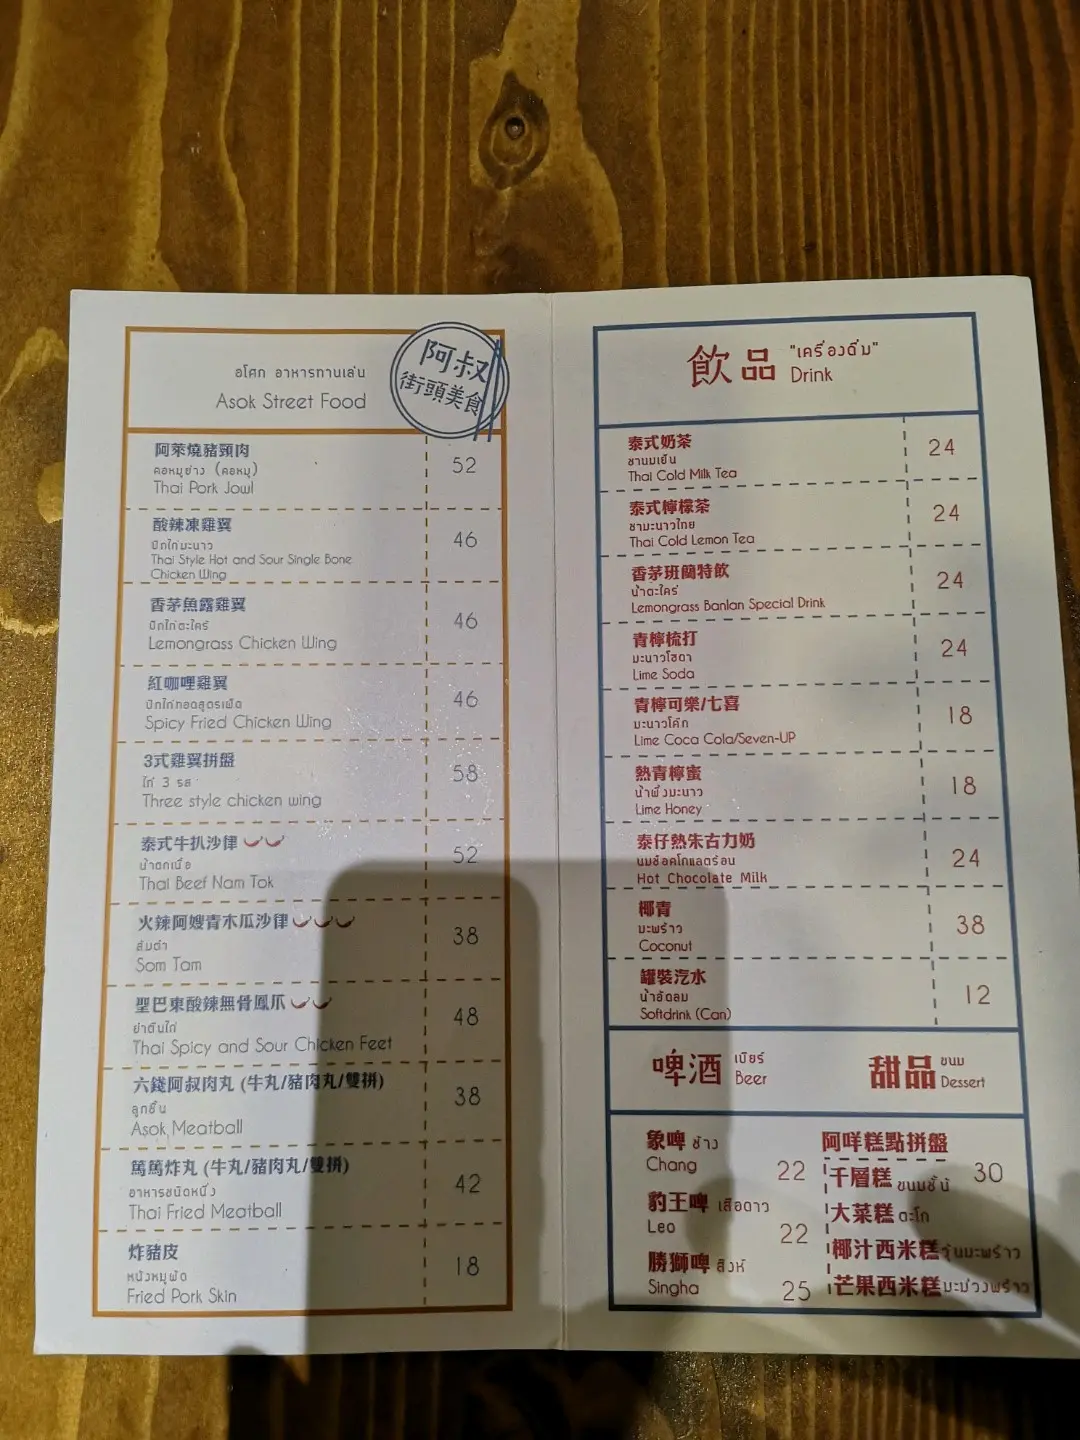 อโศก อาหารทานเล่น
Asok Street Food
阿叔
街頭美食
阿萊燒豬頸肉
คอหมูย่าง (คอหมู)
Thai Pork Jowl
52
酸辣凍雞翼
ปีกไก่มะนาว
Thai Style Hot and Sour Single Bone
Chicken Wing
46
香茅魚露雞翼
ปีกไก่ตะไคร้
Lemongrass Chicken Wing
46
紅咖喱雞翼
ปีกไก่ทอดสูตรเผ็ด
Spicy Fried Chicken Wing
46
3式雞翼拼盤
ไก่ 3 รส
Three style chicken wing
58
泰式牛扒沙律
น้ำตกเนื้อ
Thai Beef Nam Tok
52
火辣阿嫂青木瓜沙律
ส้มตำ
Som Tam
38
聖巴東酸辣無骨鳳爪
ยำตีนไก่
Thai Spicy and Sour Chicken Feet
48
六錢阿叔肉丸 (牛丸/豬肉丸/雙拼)
ลูกชิ้น
Asok Meatball
38
篤篤炸丸 (牛丸/豬肉丸/雙拼)
อาหารชนิดหนึ่ง
Thai Fried Meatball
42
炸豬皮
หนังหมูผัด
Fried Pork Skin
18
飲品 "เครื่องดื่ม"
Drink
泰式奶茶
ชานมเย็น
Thai Cold Milk Tea
24
泰式檸檬茶
ชามะนาวไทย
Thai Cold Lemon Tea
24
香茅班蘭特飲
น้ำตะไคร้
Lemongrass Banlan Special Drink
24
青檸梳打
มะนาวโซดา
Lime Soda
24
青檸可樂/七喜
มะนาวโค้ก
Lime Coca Cola/Seven-UP
18
熱青檸蜜
น้ำผึ้งมะนาว
Lime Honey
18
泰仔熱朱古力奶
นมช็อคโกแลตร้อน
Hot Chocolate Milk
24
椰青
มะพร้าว
Coconut
38
罐裝汽水
น้ำอัดลม
Softdrink (Can)
12
啤酒 เบียร์
Beer
象啤 ช้าง
Chang
22
豹王啤 เสือดาว
Leo
22
勝獅啤 สิงห์
Singha
25
甜品 ขนม
Dessert
阿咩糕點拼盤
30
千層糕 ขนมชั้น
大菜糕 ตะโก้
椰汁西米糕 วุ้นมะพร้าว
芒果西米糕 มะม่วงพร้าว